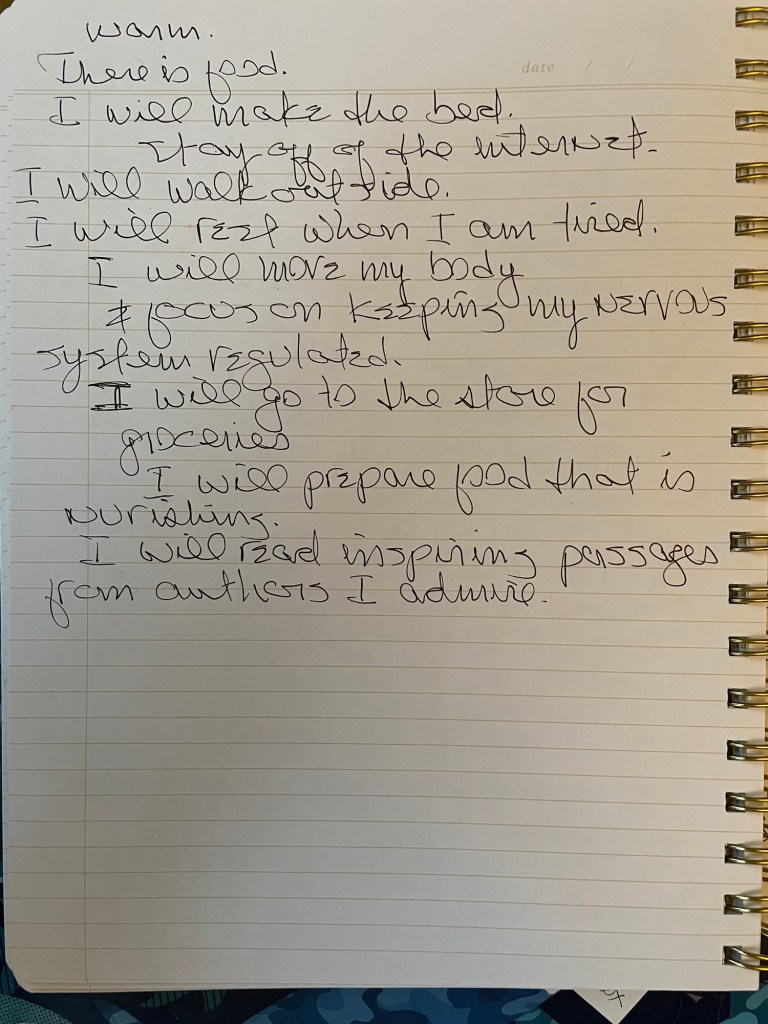 warm.
There is food.
date / /
I will make the bed.
stay off of the internet.
I will walk outside.
I will rest when I am tired.
I will move my body
& focus on keeping my nervous
system regulated.
I will go to the store for
groceries
I will prepare food that is
nurishing.
I will read inspiring passages
from authors I admire.